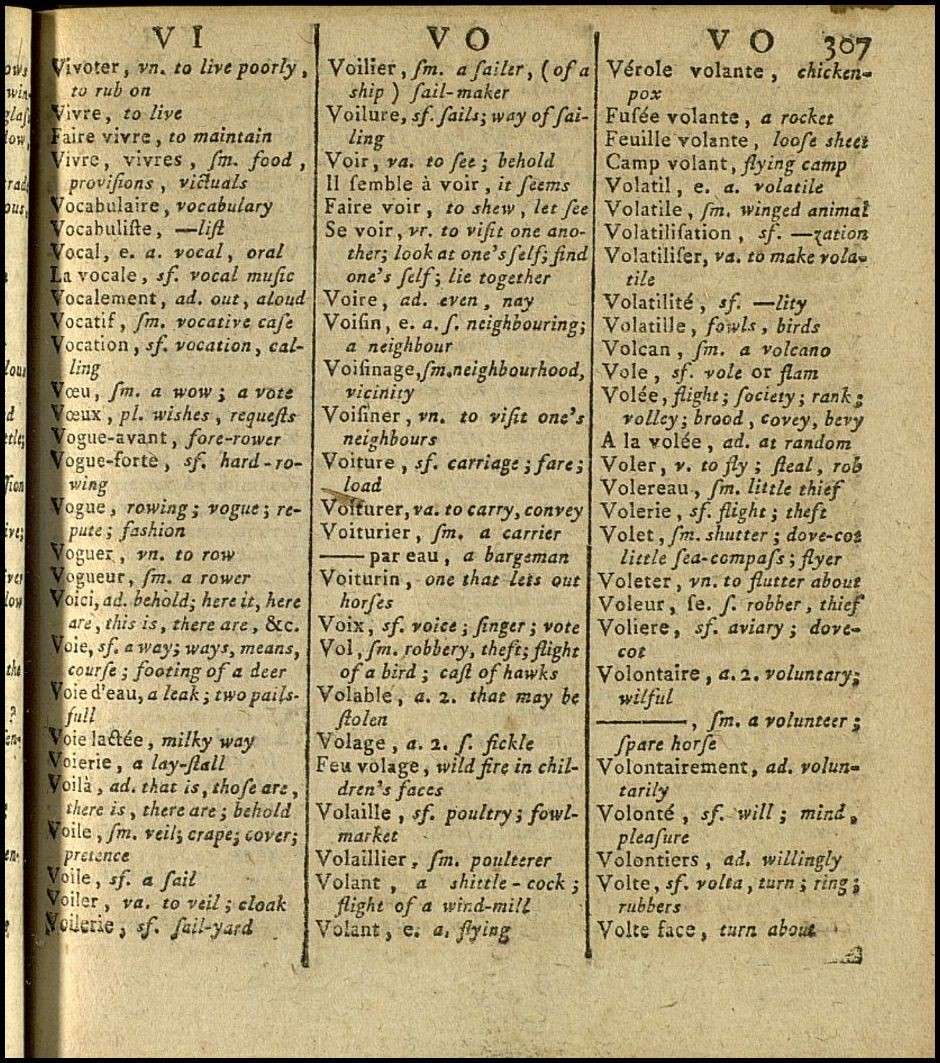 VI
Vivoter, vn. to live poorly,
to rub on
Vivre, to live
Faire vivre, to maintain
Vivre, vivres, ſm. food,
proviſions, victuals
Vocabulaire, vocabulary
Vocabuliſte, —liſt
Vocal, e. a. vocal, oral
La vocale, sf. vocal muſic
Vocalement, ad. out, aloud
Vocatif, ſm. vocative caſe
Vocation, sf. vocation, cal-
ling
Vœu, ſm. a wow; a vote
Vœux, pl. wishes, requeſts
Vogue-avant, fore-rower
Vogue-forte, sf. hard-ro-
wing
Vogue, rowing; vogue; re-
pute; fashion
Voguer, vn. to row
Vogueur, ſm. a rower
Voici, ad. behold; here it, here
are, this is, there are, &c.
Voie, sf. a way; ways, means,
courſe; footing of a deer
Voie d'eau, a leak; two pails-
full
Voie lactée, milky way
Voierie, a lay-ſtall
Voilà, ad. that is, thoſe are,
there is, there are; behold
Voile, ſm. veil; crape; cover;
pretence
Voile, sf. a ſail
Voiler, va. to veil; cloak
Voilerie, sf. ſail-yard
VO
Voilier, ſm. a ſailer, (of a
ship) ſail-maker
Voilure, sf. ſails; way of ſai-
ling
Voir, va. to ſee; behold
Il ſemble à voir, it ſeems
Faire voir, to shew, let ſee
Se voir, vr. to viſit one ano-
ther; look at one's ſelf; find
one's ſelf; lie together
Voire, ad. even, nay
Voiſin, e. a. ſ. neighbouring;
a neighbour
Voiſinage, ſm. neighbourhood,
vicinity
Voiſiner, vn. to viſit one's
neighbours
Voiture, sf. carriage; fare;
load
Voiturer, va. to carry, convey
Voiturier, ſm. a carrier
—— par eau, a bargeman
Voiturin, one that lets out
horſes
Voix, sf. voice; ſinger; vote
Vol, ſm. robbery, theft; flight
of a bird; caſt of hawks
Volable, a. 2. that may be
ſtolen
Volage, a. 2. ſ. fickle
Feu volage, wild fire in chil-
dren's faces
Volaille, sf. poultry; fowl-
market
Volaillier, ſm. poulterer
Volant, a shittle-cock;
flight of a wind-mill
Volant, e. a. flying
VO 307
Vérole volante, chicken-
pox
Fuſée volante, a rocket
Feuille volante, looſe sheet
Camp volant, flying camp
Volatil, e. a. volatile
Volatile, ſm. winged animal
Volatiliſation, sf. —zation
Volatiliſer, va. to make vola-
tile
Volatilité, sf. —lity
Volatille, fowls, birds
Volcan, ſm. a volcano
Vole, sf. vole or flam
Volée, flight; ſociety; rank;
volley; brood, covey, bevy
A la volée, ad. at random
Voler, v. to fly; ſteal, rob
Volereau, ſm. little thief
Volerie, sf. flight; theft
Volet, ſm. shutter; dove-cot
little ſea-compaſs; flyer
Voleter, vn. to flutter about
Voleur, ſe. ſ. robber, thief
Voliere, sf. aviary; dove-
cot
Volontaire, a. 2. voluntary;
wilful
———, ſm. a volunteer;
ſpare horſe
Volontairement, ad. volun-
tarily
Volonté, sf. will; mind,
pleaſure
Volontiers, ad. willingly
Volte, sf. volta, turn; ring;
rubbers
Volte face, turn about